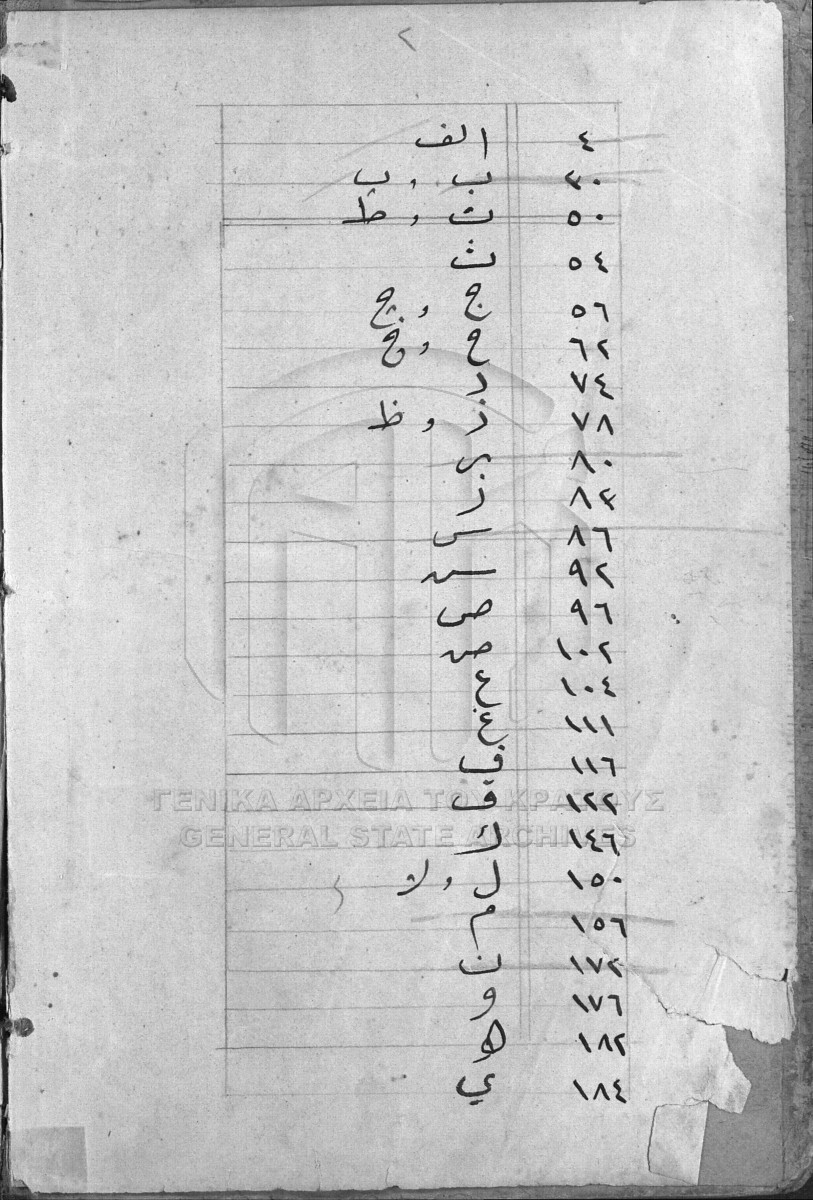 ٢
٤ الف
٣٠ ب , پ
٥٠ ت , ط
٥٤ ث
٥٦ ج , چ
٦٢ ح , خ
٧٤ د
٧٨ ذ , ظ
٨٠ ر
٨٤ ز
٨٦ س
٩٢ ش
٩٦ ص
١٠٢ ض
١٠٤ ع
١١١ غ
١١٦ ف
١٢٢ ق
١٤٦ ك
١٥٠ ل , لا
١٥٦ م
١٧٢ ن
١٧٦ و
١٨٢ ه
١٨٤ ي
ΓΕΝΙΚΑ ΑΡΧΕΙΑ ΤΟΥ ΚΡΑΤΟΥΣ
GENERAL STATE ARCHIVES